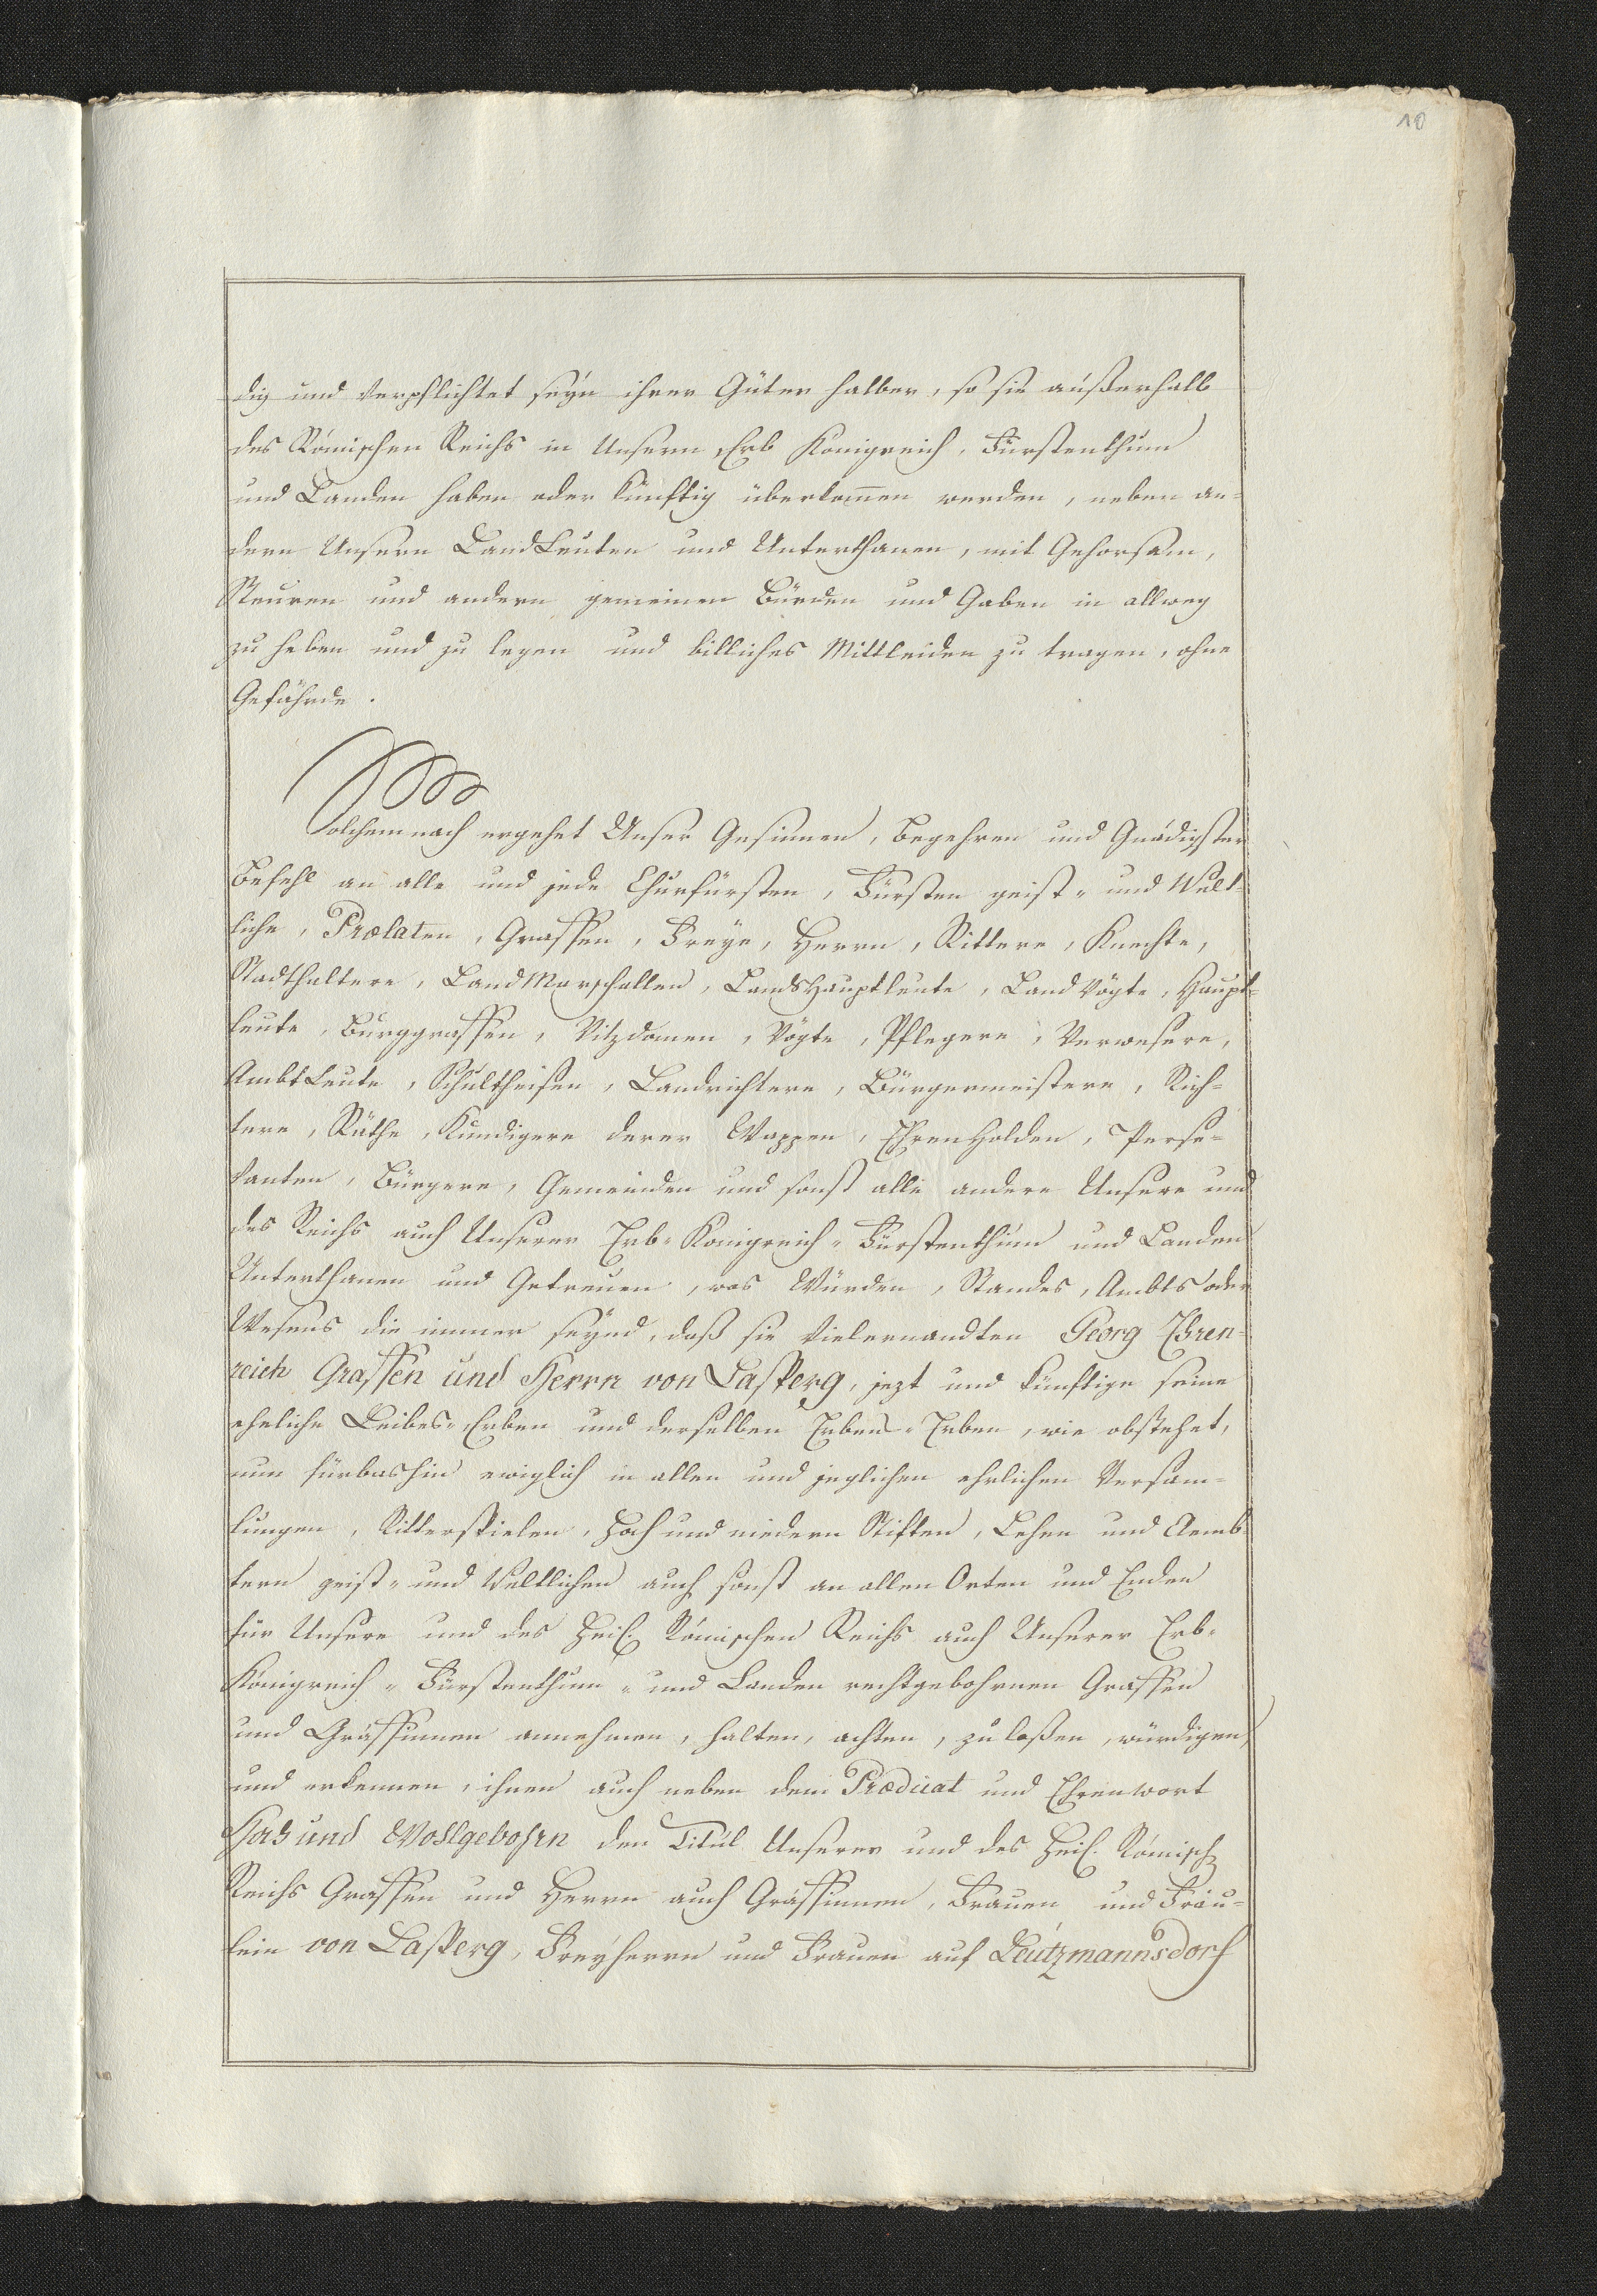 10
dig und verpflichtet seyn ihrer Güter halber, so sie außerhalb
des Römischen Reichs in Unsern Erb Königreich, Fürstenthum
und Landen haben oder künftig überkom̄en werden, neben an-
dern Unsern Landleuten und Unterthanen, mit Gehorsam,
Steuren und andern gemeinen Bürden und Gaben in allweg
zu heben und zu legen und billiches Mittleiden zu tragen, ohne
Gefährde.
Solchemnach ergehet Unser Gesinnen, Begehren und Gnädigster
Befehl an alle und jede Churfürsten, Fürsten geist- und Welt-
liche, Prælaten, Graffen, Freye, Herrn, Rittere, Knechte,
Stadthaltere, LandMarschallen, LandsHauptleute, LandVögte, Haupt-
leute, Burggraffen, Vitzdomen, Vögte, Pflegere, Verwesere,
Ambtleute, Schultheisen, Landrichtere, Bürgermeistere, Rich-
tere, Räthe, Kundigere derer Wappen, Ehrenholden, Perse-
vanten, Bürgere, Gemeinden und sonst alle andere Unsere und
des Reichs auch Unserer Erb-Königreich-Fürstenthum und Landen
Unterthanen und Getreuen, was Würden, Standes, Ambts oder
Wesens die immer seynd, daß sie vielernandten Georg Ehren-
reich Graffen und Herrn von Lasperg, jezt und künftige seine
eheliche Leibes-Erben und derselben Erbens-Erben, wie obstehet,
nun fürbashin ewiglich in allen und jeglichen ehrlichen Versam-
lungen, Ritterspielen, Hoch und niedern Stiften, Lehen und Aemb-
tern geist- und Weltlichen auch sonst an allen Orten und Enden
für Unsere und des Heil. Römischen Reichs auch Unserer Erb-
Königreich-Fürstenthum- und Landen rechtgebohrnen Graffen
und Gräffinnen annehmen, halten, achten, zulaßen, würdigen
und erkennen, ihnen auch neben dem Prædicat und Ehrenwort
Hoch und Wohlgebohrn den Titul Unserer und des Heil. Römisch
Reichs Graffen und Herrn auch Gräffinnen, Frauen und Fräu-
lein von Lasperg, Freyherrn und Frauen auf Leutzmannsdorf